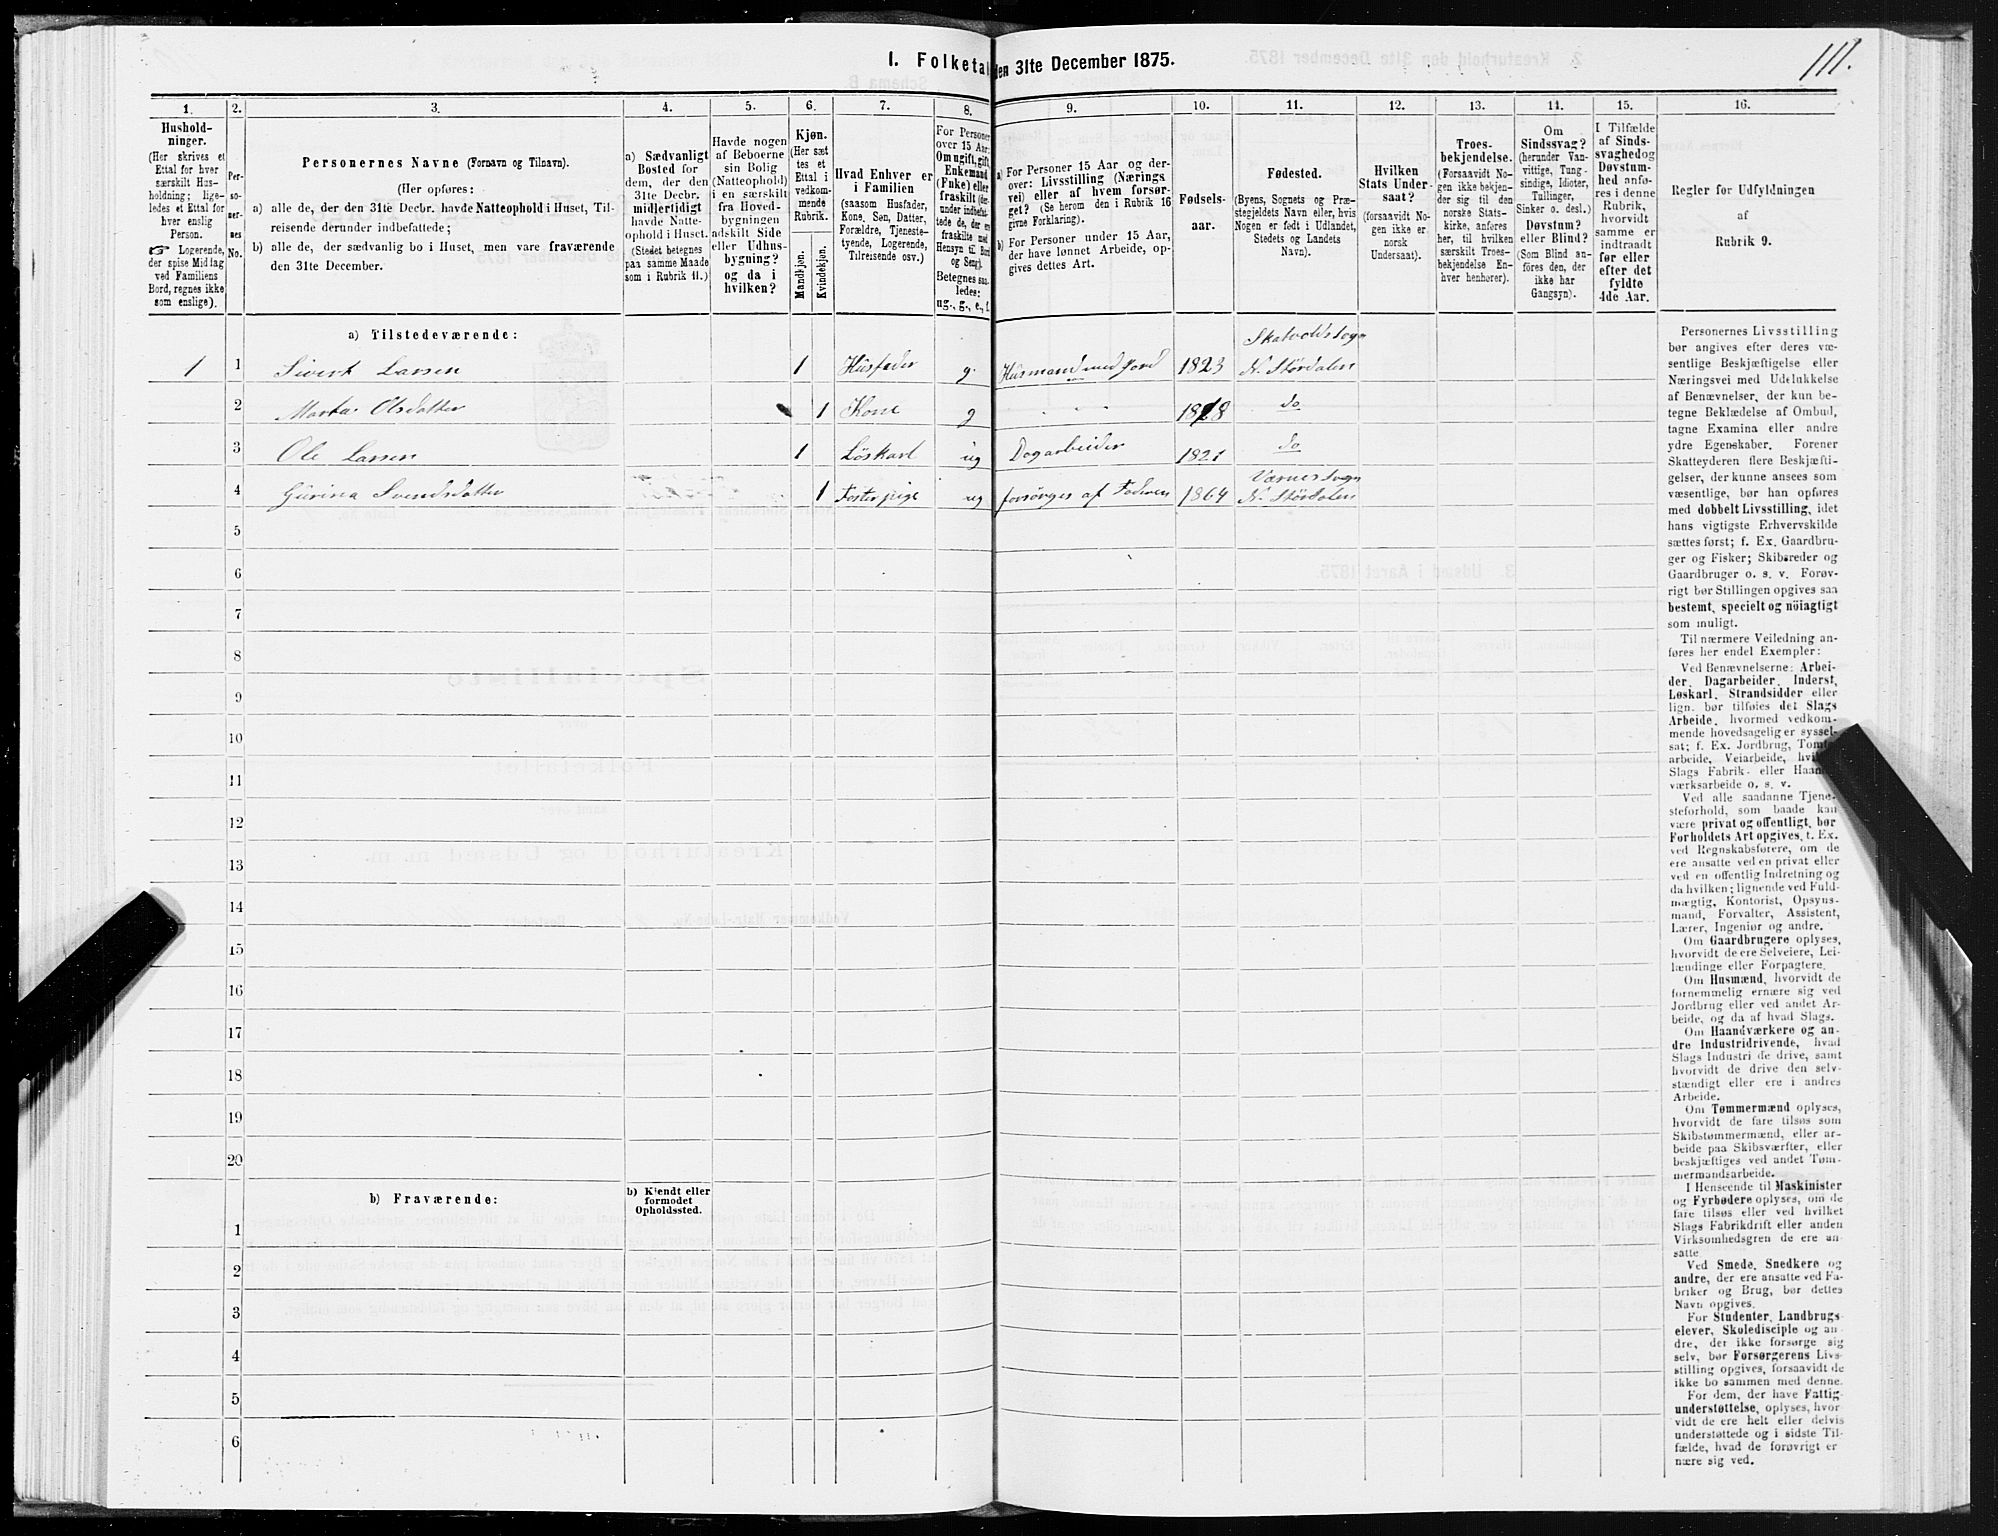 I. Folketal den 31te December 1875.
111.
1. 2. 3. 4. 5. 6. 7. 8. 9. 10. 11. 12. 13. 14. 15. 16.
Hushold-
ninger.
(Her skrives et
Ettal for hver
særskilt Hus-
holdning; lige-
ledes et Ettal for
hver enslig
Person.
☞ Logerende,
der spise Middag
ved Familiens
Bord, regnes ikke
som enslige).
Per-
so-
ner-
nes
No.
Personernes Navne (Fornavn og Tilnavn).
(Her opføres:
a) alle de, der den 31te Decbr. havde Natteophold i Huset, Til-
reisende derunder indbefattede;
b) alle de, der sædvanlig bo i Huset, men vare fraværende
den 31te December.
a) Sædvanligt
Bosted for
dem, der den
31te Decbr.
midlertidigt
havde Natte-
ophold i Huset.
(Stedet betegnes
paa samme Maade
som i Rubrik 11.)
Havde nogen
af Beboerne
sin Bolig
(Natteophold)
i en særskilt
fra Hoved-
bygningen
adskilt Side
eller Udhus-
bygning?
og da i
hvilken?
Kjøn.
(Her sæt
tes et
Ettal i
vedkom-
mende
Rubrik.
Mandkjøn.
Kvindekjøn.
Hvad Enhver er
i Familien
(saasom Husfader,
Kone, Søn, Datter,
Forældre, Tjeneste-
tyende, Logerende,
Tilreisende osv.)
For Personer
over 15 Aar:
Om ugift, gift,
Enkemand
(Enke) eller
fraskilt (der-
under indbefat-
tede de, der ere
fraskilte med
Hensyn til Bord
og Seng).
Betegnes saa-
ledes:
ug., g., e., f.
a) For Personer 15 Aar og der-
over: Livsstilling (Nærings
vei) eller af hvem forsør-
get? (Se herom den i Rubrik 16
givne Forklaring).
b) For Personer under 15 Aar,
der have lønnet Arbeide, op-
gives dettes Art.
Fødsels-
aar.
Fødested.
(Byens, Sognets og Præ-
stegjeldets Navn eller, hvis
Nogen er født i Udlandet,
Stedets og Landets
Navn).
Hvilken
Stats Under-
saat?
(forsaavidt No-
gen ikke er
norsk
Undersaat).
Troes-
bekjendelse.
(Forsaavidt No-
gen ikke bekjen-
der sig til den
norske Stats-
kirke, anføres
her, til hvilken
særskilt Troes-
bekjendelse En-
hver henhører).
Om
Sindssvag?
(herunder Van-
vittige, Tung-
sindige, Idioter,
Tullinger,
Sinker o. desl.)
Døvstum?
eller Blind?
(Som Blind an-
føres den, der
ikke har
Gangsyn).
I Tilfælde
af Sinds-
svaghed og
Døvstum-
hed anfø-
res i denne
Rubrik,
hvorvidt
samme er
indtraadt
før eller
efter det
fyldte
4de Aar.
Regler for Udfyldningen
af
Rubrik 9.
a) Tilstedeværende:
Skatvoldssogn
1 1 Sivert Larsen 1 Husfader g. Husmand med Jord 1823 N. Stördalen
2 Marta Olsdatter 1 Kone g " " " 1818 do
3 Ole Larsen 1 Löskarl ug Dagarbeider 1821 do
Værnes sogn
4 Gurina Svendsdatter 1 Fosterpige ug forsörges af Faderen 1864 N. Stördalen
5
6
7
8
9
10
11
12
13
14
15
16
17
18
19
20
b) Fraværende:
b) Kjendt eller
formodet
Opholdssted.
1
2
3
4
5
6
Personernes Livsstilling
bør angives efter deres væ-
sentlige Beskjæftigelse eller
Næringsvei med Udelukkelse
af Benævnelser, der kun be-
tegne Beklædelse af Ombud,
tagne Examina eller andre
ydre Egenskaber. Forener
Skatteyderen flere Beskjæfti-
gelser, der kunne ansees som
væsentlige, bør han opføres
med dobbelt Livsstilling, idet
hans vigtigste Erhvervskilde
sættes først; f. Ex. Gaardbru-
ger og Fisker; Skibsreder og
Gaardbruger o. s. v. Forøv-
rigt bør Stillingen opgives saa
bestemt, specielt og nöiagtigt
som muligt.
Til nærmere Veiledning an-
føres her endel Exempler:
Ved Benævnelserne: Arbei-
der, Dagarbeider, Inderst,
Løskarl, Strandsidder eller
lign. bør tilføies det Slags
Arbeide, hvormed vedkom-
mende hovedsagelig er syssel-
sat; f. Ex. Jordbrug,
arbeide, Veiarbeide,
Slags Fabrik- eller
værksarbeide o. s. v.
Ved alle saadanne Tjene-
steforhold, som baade kan
være privat og offentligt, bør
Forholdets Art opgives, t. Ex.
ved Regnskabsførere, om de
ere ansatte ved en privat eller
ved en offentlig Indretning og
da hvilken; lignende ved Fuld-
mægtig, Kontorist, Opsyns-
mand, Forvalter, Assistent,
Lærer, Ingeniør og andre.
Om Gaardbrugere oplyses,
hvorvidt de ere Selveiere, Lei-
lændinge eller Forpagtere.
Om Husmænd, hvorvidt de
fornemmelig ernære sig ved
Jordbrug eller ved andet Ar-
beide, og da af hvad Slags.
Om Haandværkere og an-
dre Industridrivende, hvad
Slags Industri de drive, samt
hvorvidt de drive den selv-
stændigt eller ere i andres
Arbeide.
Om Tømmermænd oplyses,
hvorvidt de fare tilsøs som
Skibstømmermænd, eller ar-
beide paa Skibsværfter, eller
beskjæftiges ved andet Tøm-
mermandsarbeide.
I Henseende til Maskinister
og Fyrbødere oplyses, om de
fare tilsøs eller ved hvilket
Slags Fabrikdrift eller anden
Virksomhedsgren de ere an-
satte
Ved Smede, Snedkere og
andre, der ere ansatte ved Fa-
briker og Brug, bør dettes
Navn opgives.
For Studenter, Landbrugs-
elever, Skoledisciple og an-
dre, der ikke forsørge sig
selv, bør Forsørgerens Livs-
stilling opgives, forsaavidt de
ikke bo sammen med denne.
For dem, der have Fattig-
understøttelse, oplyses, hvor-
vidt de ere helt eller delvis
understøttede og i sidste Til-
fælde, hvad de forøvrigt er
nære sig ved.